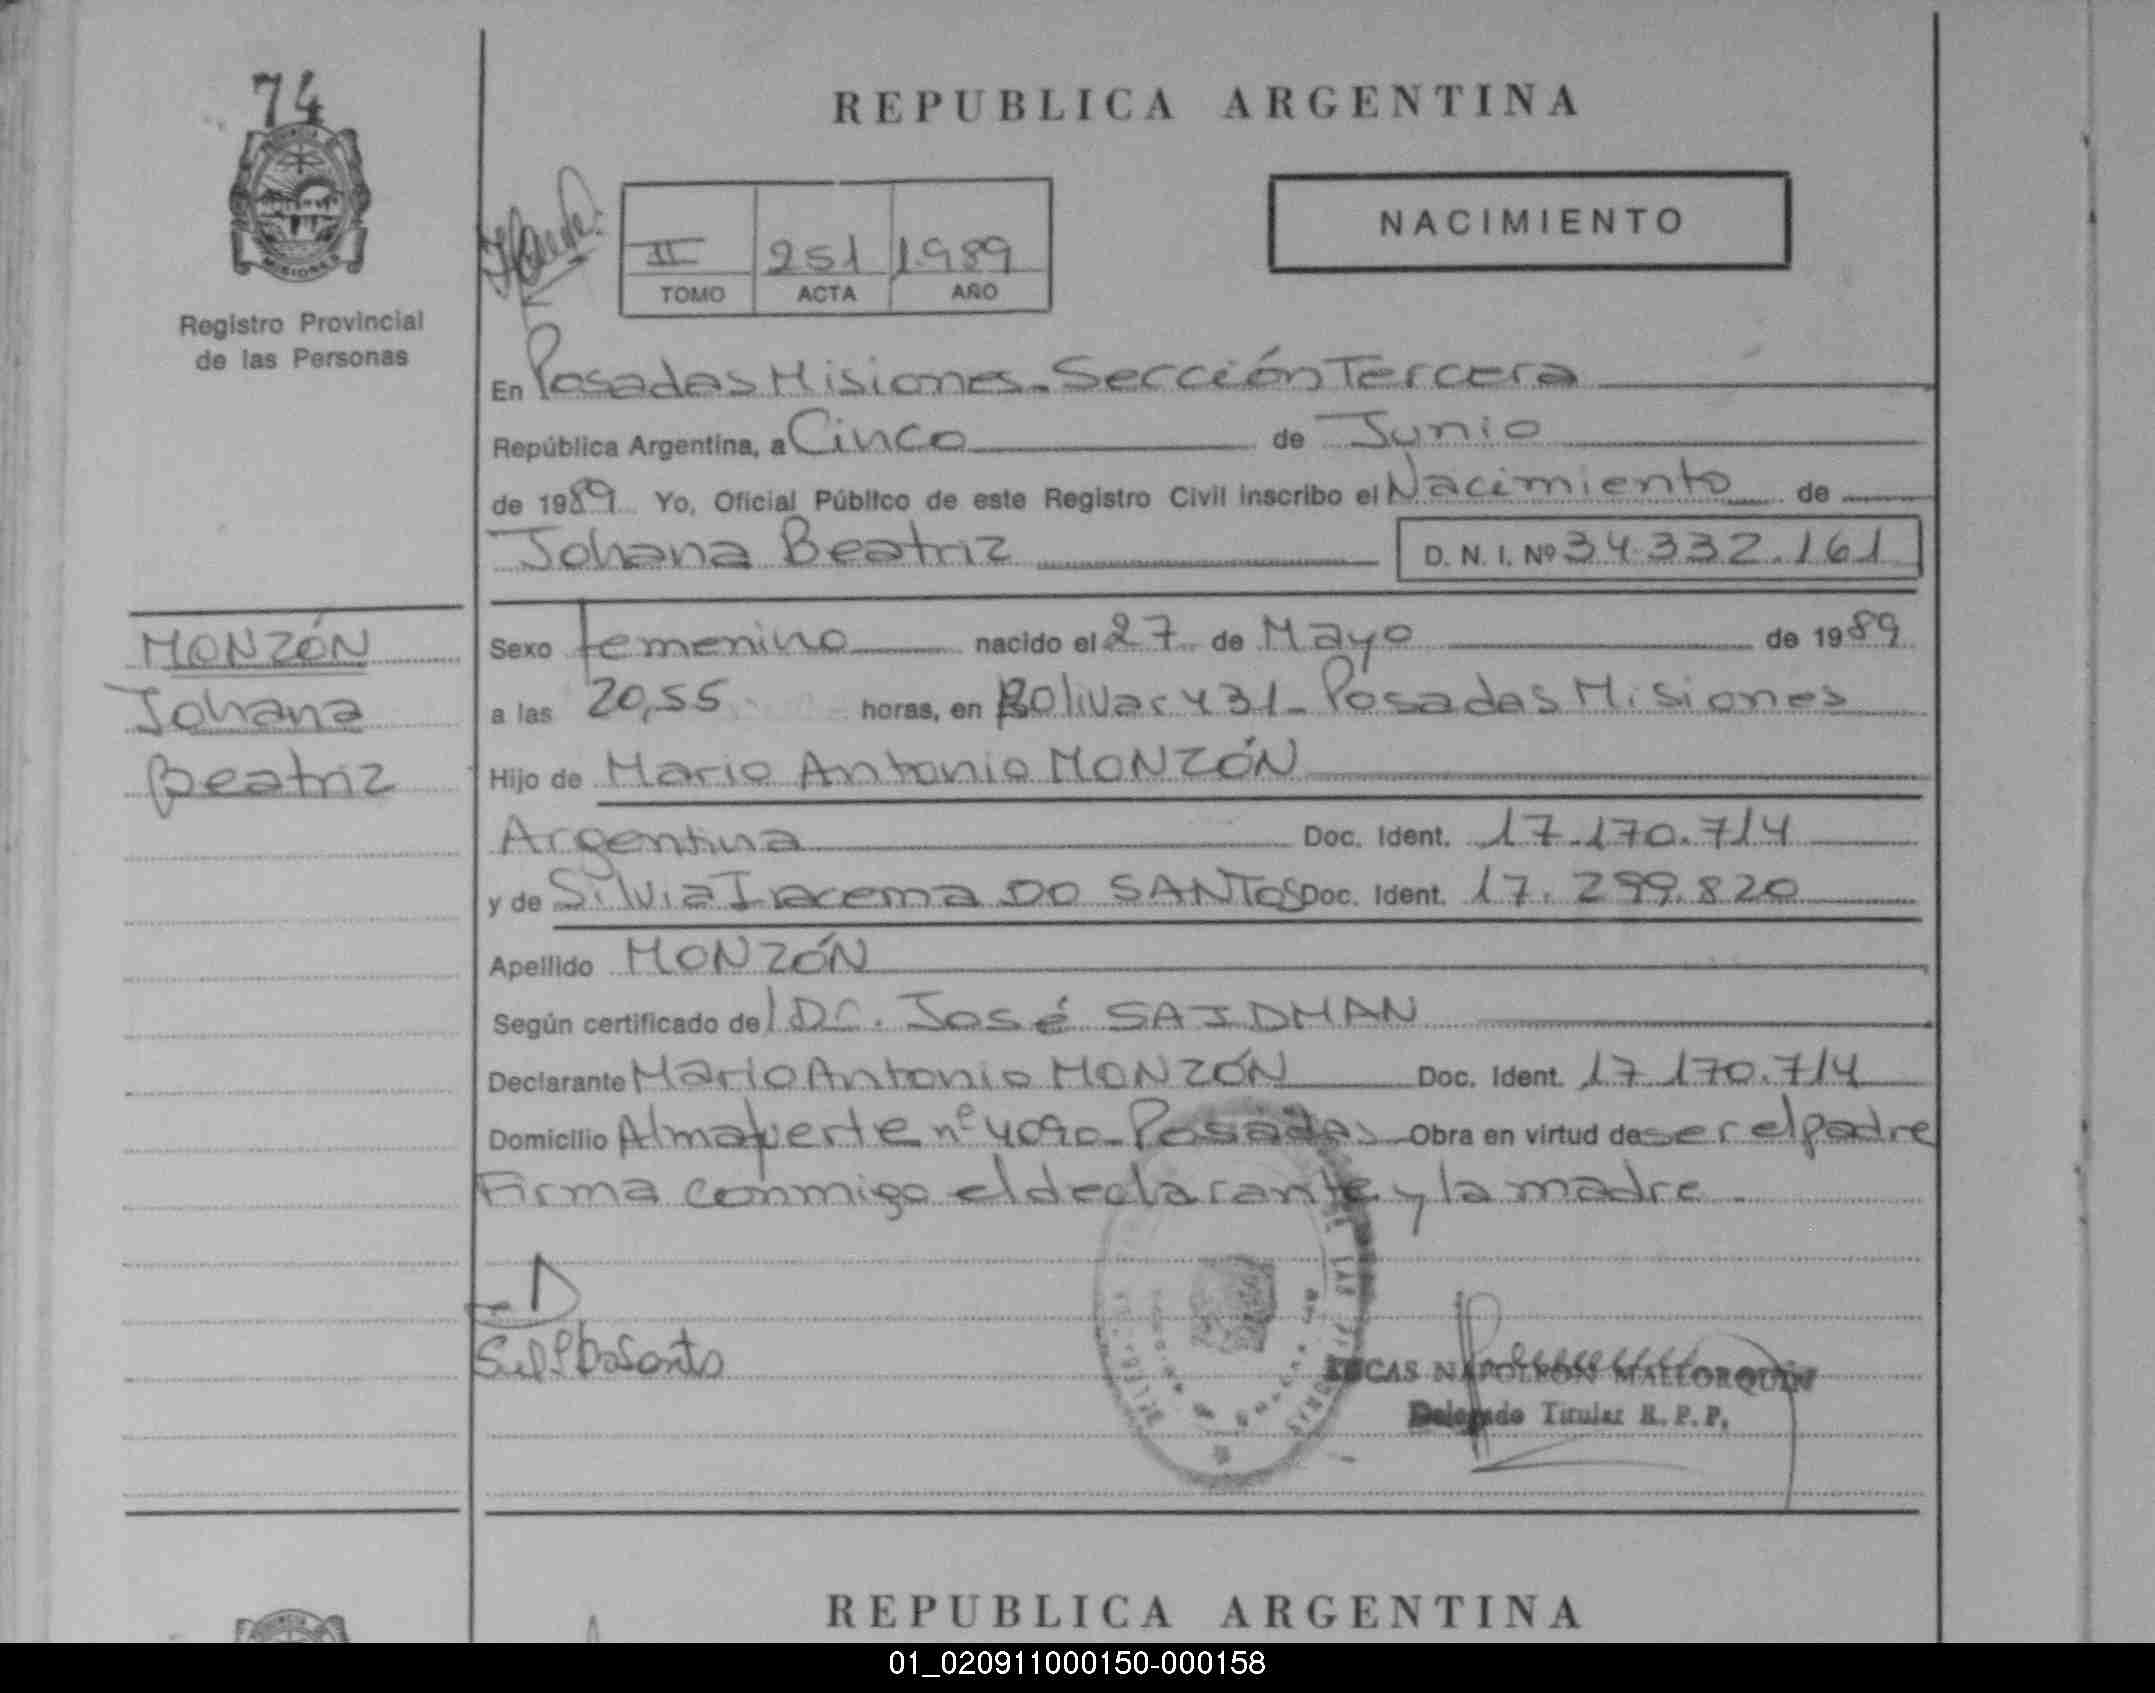 74
REPUBLICA ARGENTINA
PROVINCIA
MISIONES
Registro Provincial
de las Personas
II 251 1989
TOMO ACTA AÑO
NACIMIENTO
En Posadas Misiones - Sección Tercera
República Argentina, a Cinco de Junio
de 1989 Yo, Oficial Público de este Registro Civil inscribo el Nacimiento de
Johana Beatriz D. N. I. Nº 34.332.161
MONZÓN
Johana
Beatriz
Sexo femenino nacido el 27 de Mayo de 1989
a las 20,55 horas, en Bolivar 431 - Posadas Misiones
Hijo de Mario Antonio MONZÓN
Argentina Doc. Ident. 17.170.714
y de Silvia Iracema DO SANTOS Doc. Ident. 17.299.820
Apellido MONZÓN
Según certificado del Dr. José SAIDMAN
Declarante Mario Antonio MONZÓN Doc. Ident. 17.170.714
Domicilio Almafuerte nº 4090 - Posadas Obra en virtud de ser el padre
Firma conmigo el declarante y la madre
LUCAS NAPOLEON MALLORQUIN
Delegado Titular R. P. P.
REPUBLICA ARGENTINA
01_020911000150-000158